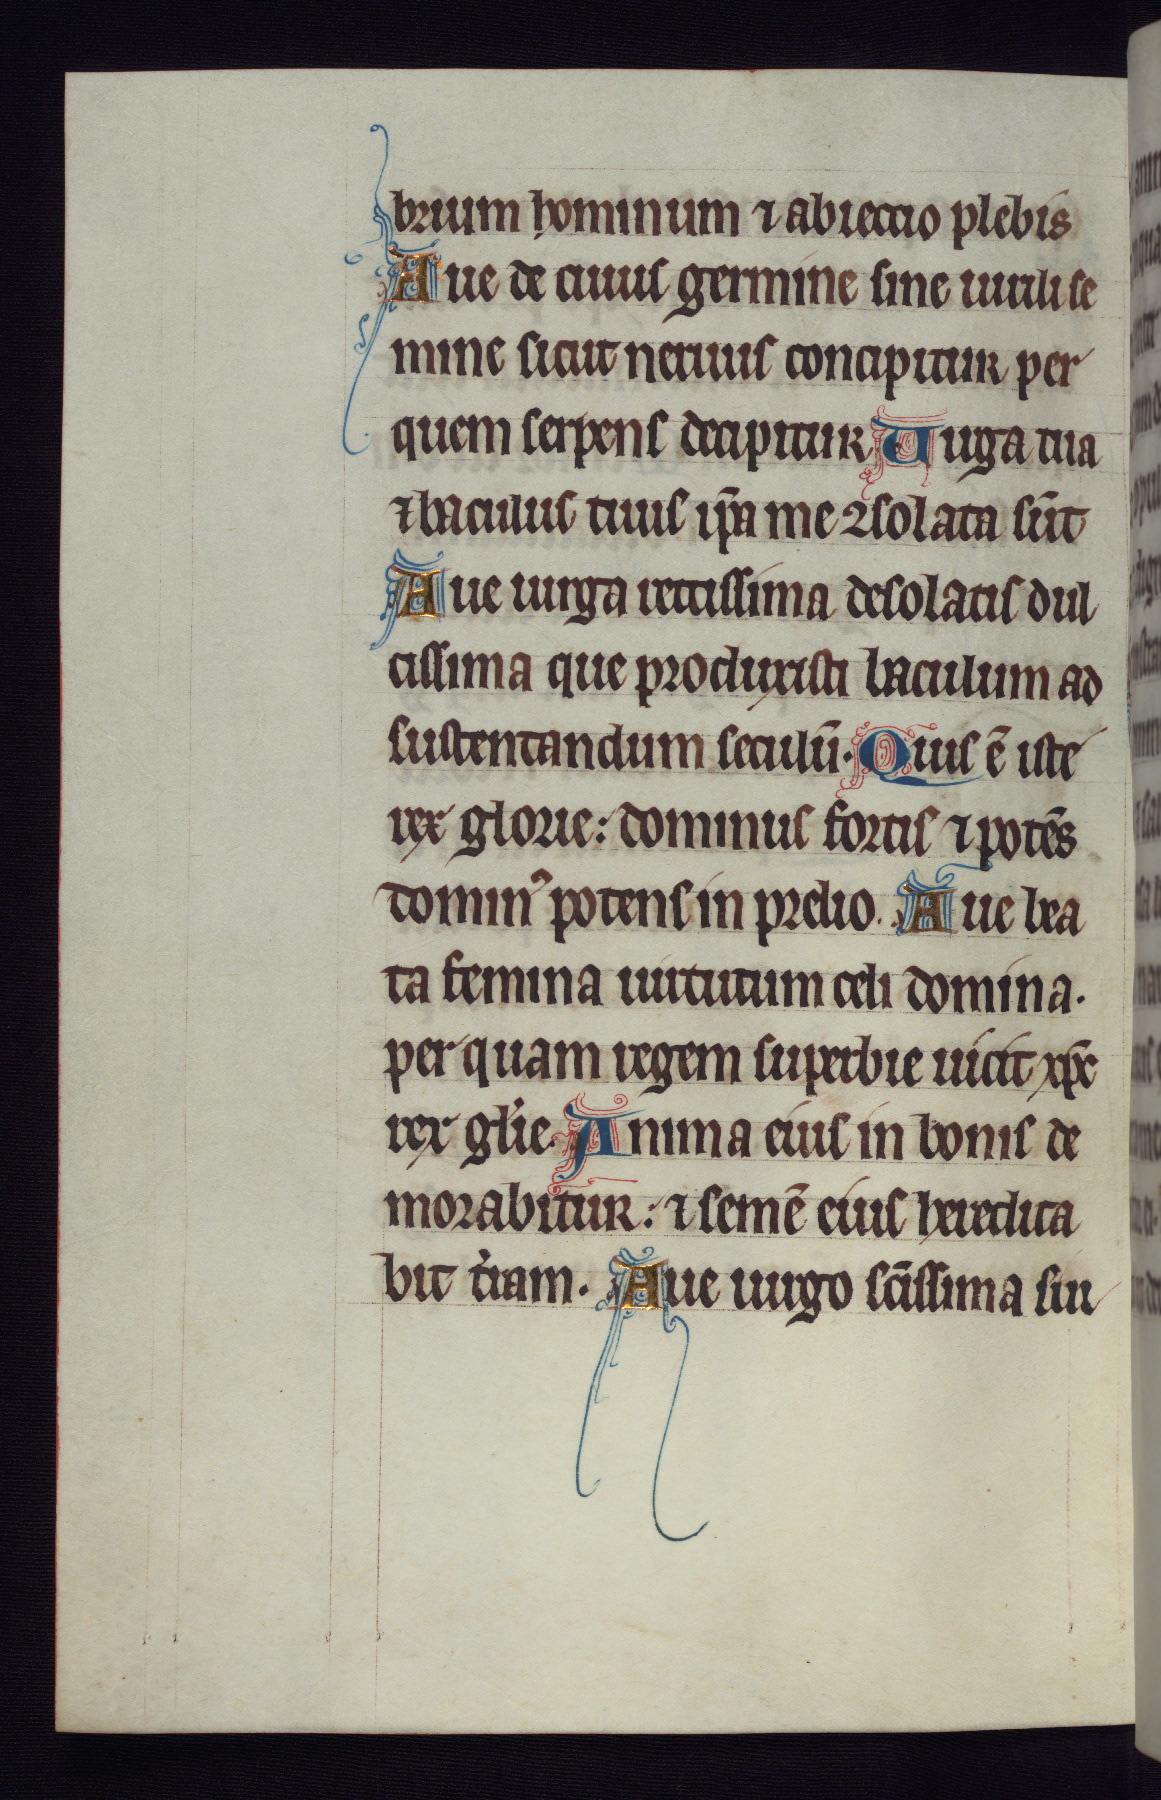 brium hominum ⁊ abieccio plebis
Aue de cuius germine sine uirili se
mine sicut neruus concipitur per
quem serpens decipitur Uirga tua
⁊ baculus tuus ip̄a me ꝯsolata sūt
Aue uirga rectissima desolatis dul
cissima que produxisti baculum ad
sustentandum seculū. Quis ē iste
rex glorie: dominus fortis ⁊ potēs
domin᾽ potens in prelio. Aue bea
ta femina uirtutum celi domina.
per quam regem superbie uicit xp̄c
rex gl̄ie. Anima eius in bonis de
morabitur: ⁊ semē eius heredita
bit t̄iam. Aue uirgo sc̄issima sin